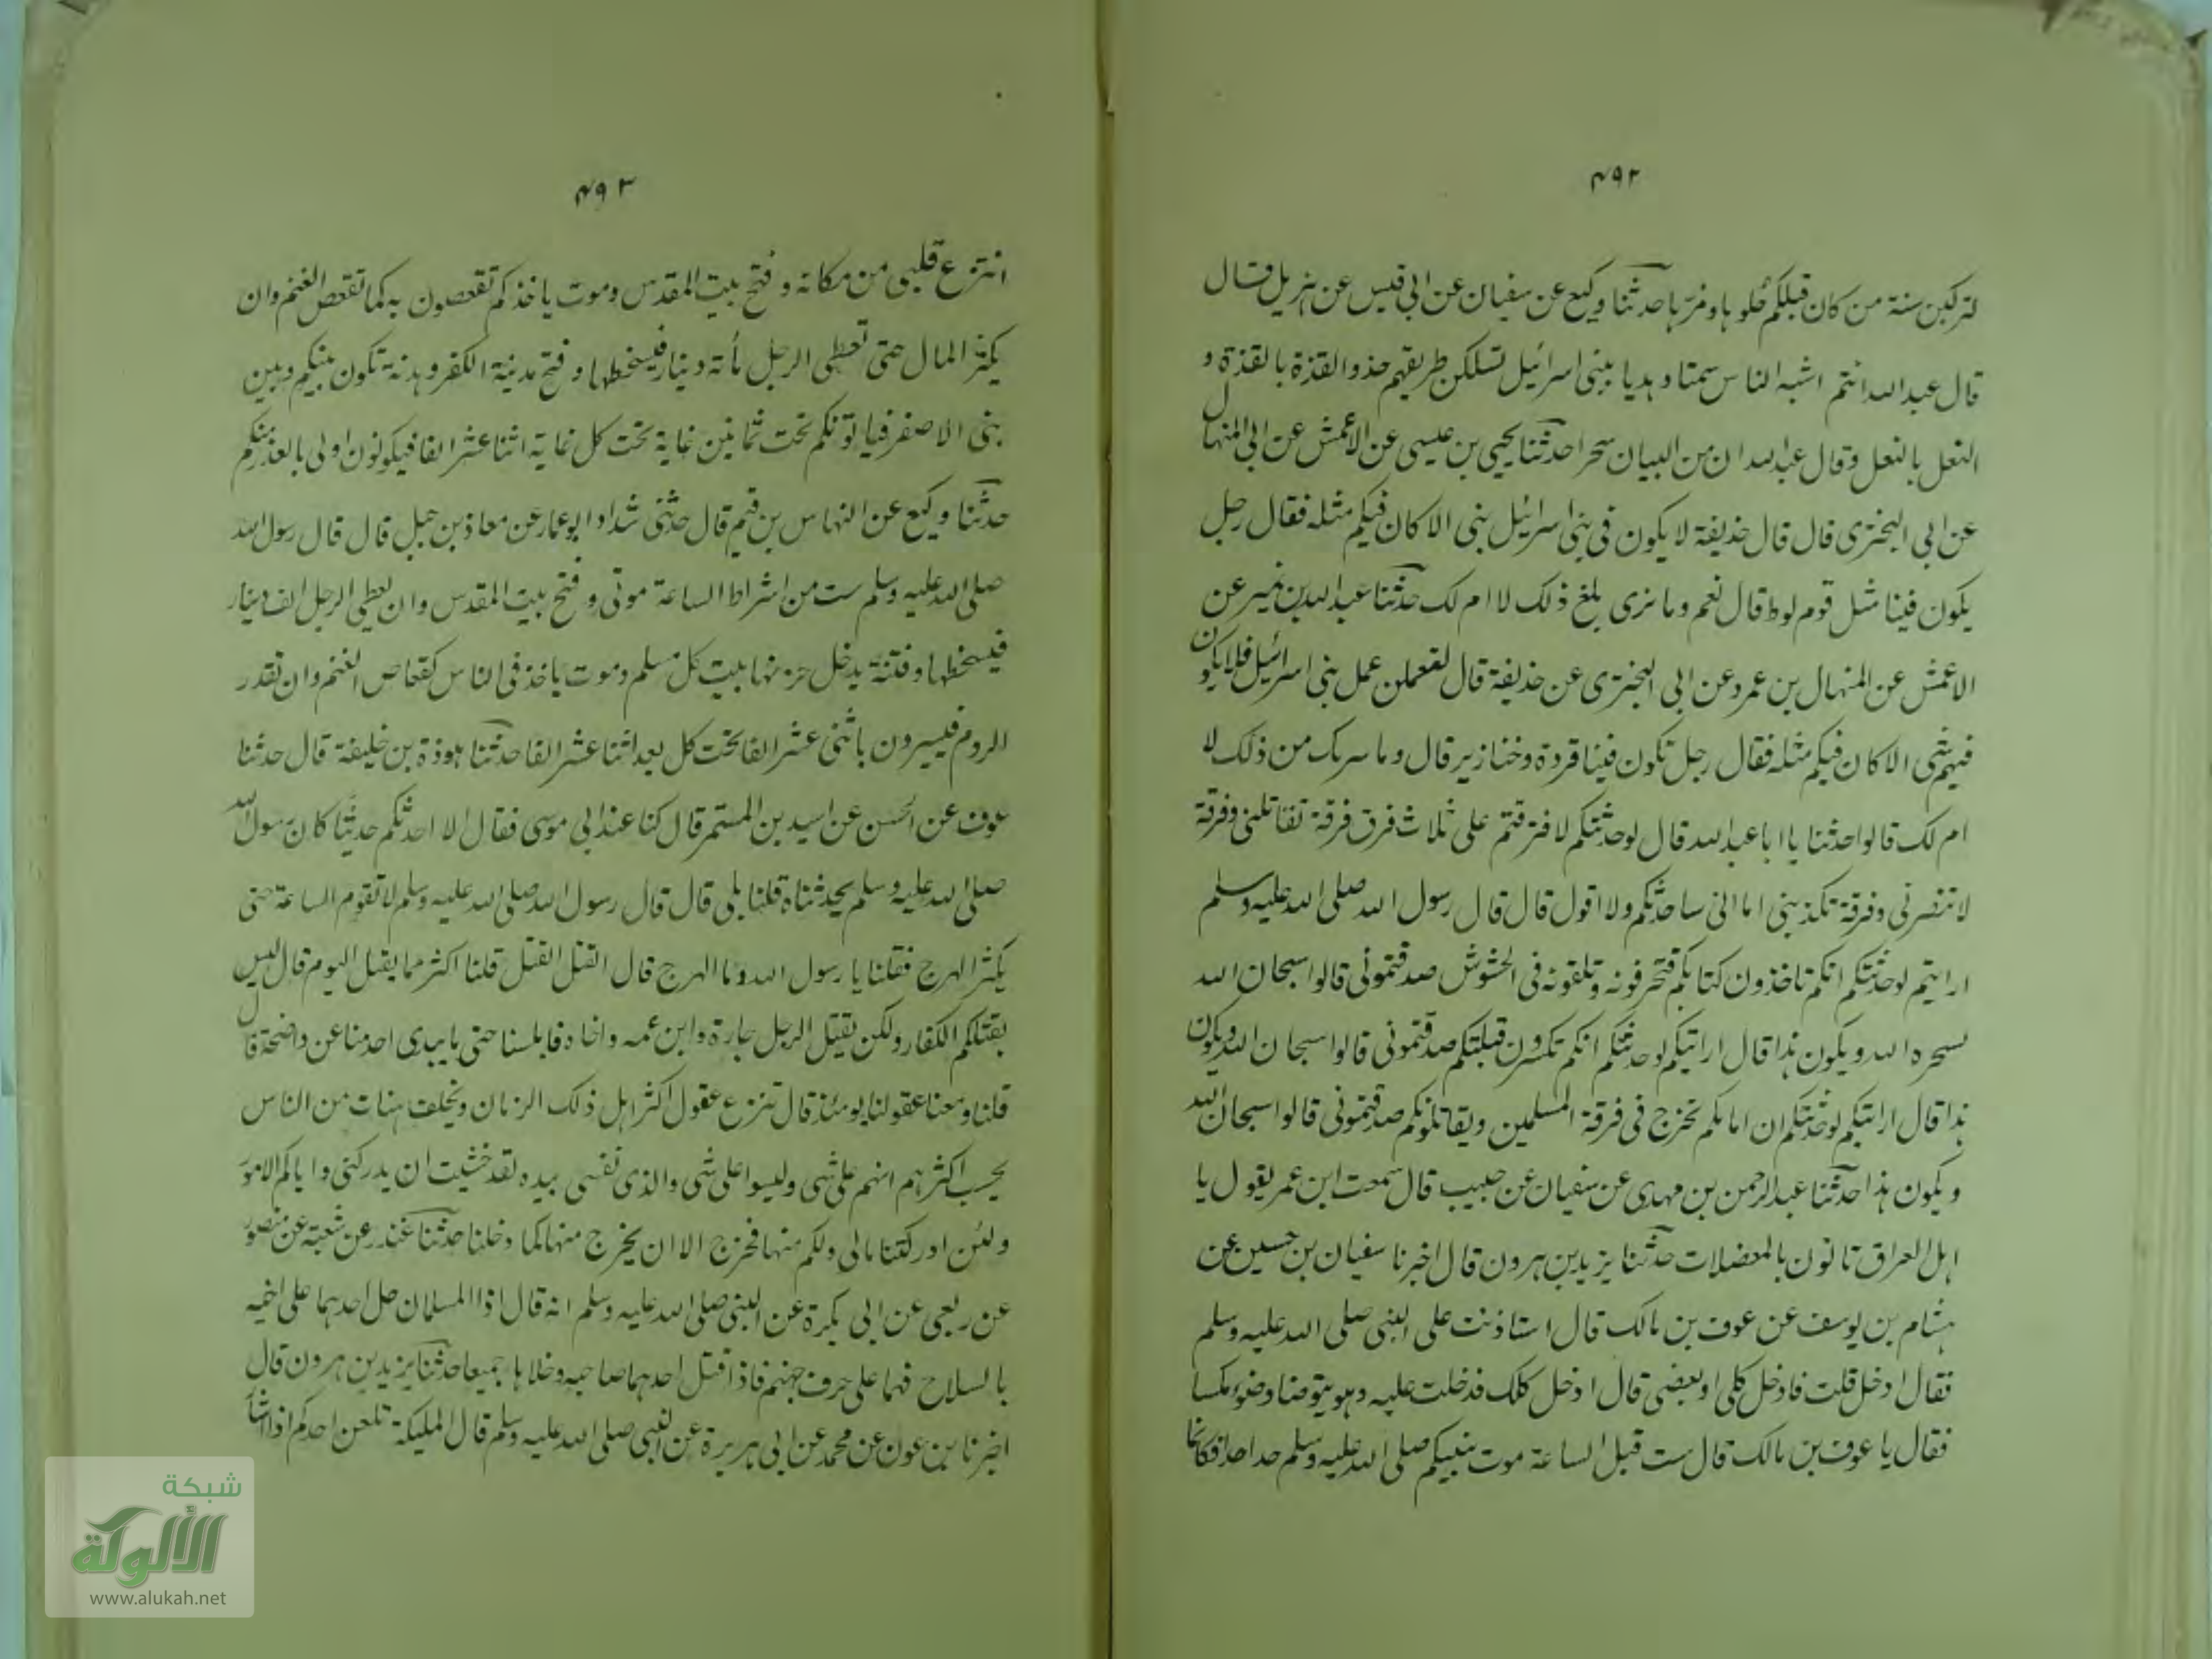 ٤٩٢
لتركبن سنة من كان قبلكم حلوها ومرها حدثنا وكيع عن سفيان عن ابي قيس عن هزيل قال
قال عبد الله انتم اشبه الناس سمتا وهديا ببني اسرائيل لتسلكن طريقهم حذو القذة بالقذة و
النعل بالنعل وقال عبد الله ان من البيان سحرا حدثنا يحيى بن عيسى عن الاعمش عن ابي المنهال
عن ابي البختري قال قال حذيفة لا يكون في بني اسرائيل بني الا كان فيكم مثله فقال رجل
يكون فينا مثل قوم لوط قال نعم وما نرى بلغ ذلك لا ام لك حدثنا عبد الله بن نمير عن
الاعمش عن المنهال بن عمرو عن ابي البختري عن حذيفة قال لتعملن عمل بني اسرائيل فلا يكون
فيهم شي الا كان فيكم مثله فقال رجل تكون فينا قردة وخنازير قال وما سرك من ذلك لا
ام لك قالوا حدثنا يا ابا عبد الله قال لو حدثتكم لافترقتم على ثلاث فرق فرقة تقاتلني وفرقة
لا تنصرني وفرقة تكذبني اما اني ساحدثكم ولا اقول قال قال رسول الله صلى الله عليه وسلم
ارايتم لو حدثتكم انكم تاخذون كتابكم فتحرفونه وتلقونه في الحشوش صدقتموني قالوا سبحان الله
ويكون هذا قال ارايتكم لو حدثتكم انكم تكسرون قبلتكم صدقتموني قالوا سبحان الله ويكون
هذا قال ارايتكم لو حدثتكم ان امامكم تخرج في فرقة المسلمين ويقاتلونكم صدقتموني قالوا سبحان الله
ويكون هذا حدثنا عبد الرحمن بن مهدي عن سفيان عن حبيب قال سمعت ابن عمر يقول يا
اهل العراق تاتون بالمعضلات حدثنا يزيد بن هرون قال اخبرنا سفيان بن حسين عن
هشام بن يوسف عن عوف بن مالك قال استاذنت على النبي صلى الله عليه وسلم
فقال ادخل قلت فادخل كلي او بعضي قال ادخل كلك فدخلت عليه وهو يتوضا وضوءا مكينا
فقال يا عوف بن مالك قال ست قبل الساعة موت نبيكم صلى الله عليه وسلم خذ احدا فكانما
٤٩٣
انتزع قلبي من مكانه وفتح بيت المقدس وموت ياخذكم تقعصون به كما تقعص الغنم وان
يكثر المال حتى تعطى الرجل مأته دينار فيسخطها وفتح مدينة الكفر وهدنة تكون بينكم وبين
بني الاصفر فياتونكم تحت ثمانين غاية تحت كل غاية اثنا عشر الفا فيكونون اولى بالغدر منكم
حدثنا وكيع عن النهاس بن قهم قال حدثني شداد ابو عمار عن معاذ بن جبل قال قال رسول الله
صلى الله عليه وسلم ست من اشراط الساعة موتي وفتح بيت المقدس وان يعطى الرجل الف دينار
فيسخطها وفتنة يدخل حزنها بيت كل مسلم وموت ياخذ في الناس كقعاص الغنم وان تغدر
الروم فيسيرون باثني عشر الفا تحت كل بند اثنا عشر الفا حدثنا هوذة بن خليفة قال حدثنا
عوف عن الحسن عن اسيد بن المستمر قال كنا عند ابي موسى فقال الا احدثكم حديثا كان رسول الله
صلى الله عليه وسلم يحدثناه قلنا بلى قال قال رسول الله صلى الله عليه وسلم لا تقوم الساعة حتى
يكثر الهرج فقلنا يا رسول الله وما الهرج قال القتل القتل قلنا اكثر مما يقتل اليوم قال ليس
بقتلكم الكفار ولكن يقتل الرجل جاره وابن عمه واخاه فابلسنا حتى ما يبدي احد منا عن واضحة قال
قلنا ومعنا عقولنا يومئذ قال تنزع عقول اكثر اهل ذلك الزمان ويخلف هنات من الناس
يحسب اكثرهم انهم على شي وليسوا على شي والذي نفسي بيده لقد خشيت ان يدركني واياكم الامور
ولئن ادركتنا مالي ولكم منها فخرج الا ان يخرج منها كما دخلنا حدثنا غندر عن شعبة عن منصور
عن ربعي عن ابي بكرة عن النبي صلى الله عليه وسلم انه قال اذا المسلمان حمل احدهما على اخيه
بالسلاح فهما على حرف جهنم فاذا قتل احدهما صاحبه دخلاها جميعا حدثنا يزيد بن هرون قال
اخبرنا بن عون عن محمد عن ابي هريرة عن النبي صلى الله عليه وسلم قال المليكة تلعن احدكم اذا اشار
شبكة
الألوكة
www.alukah.net